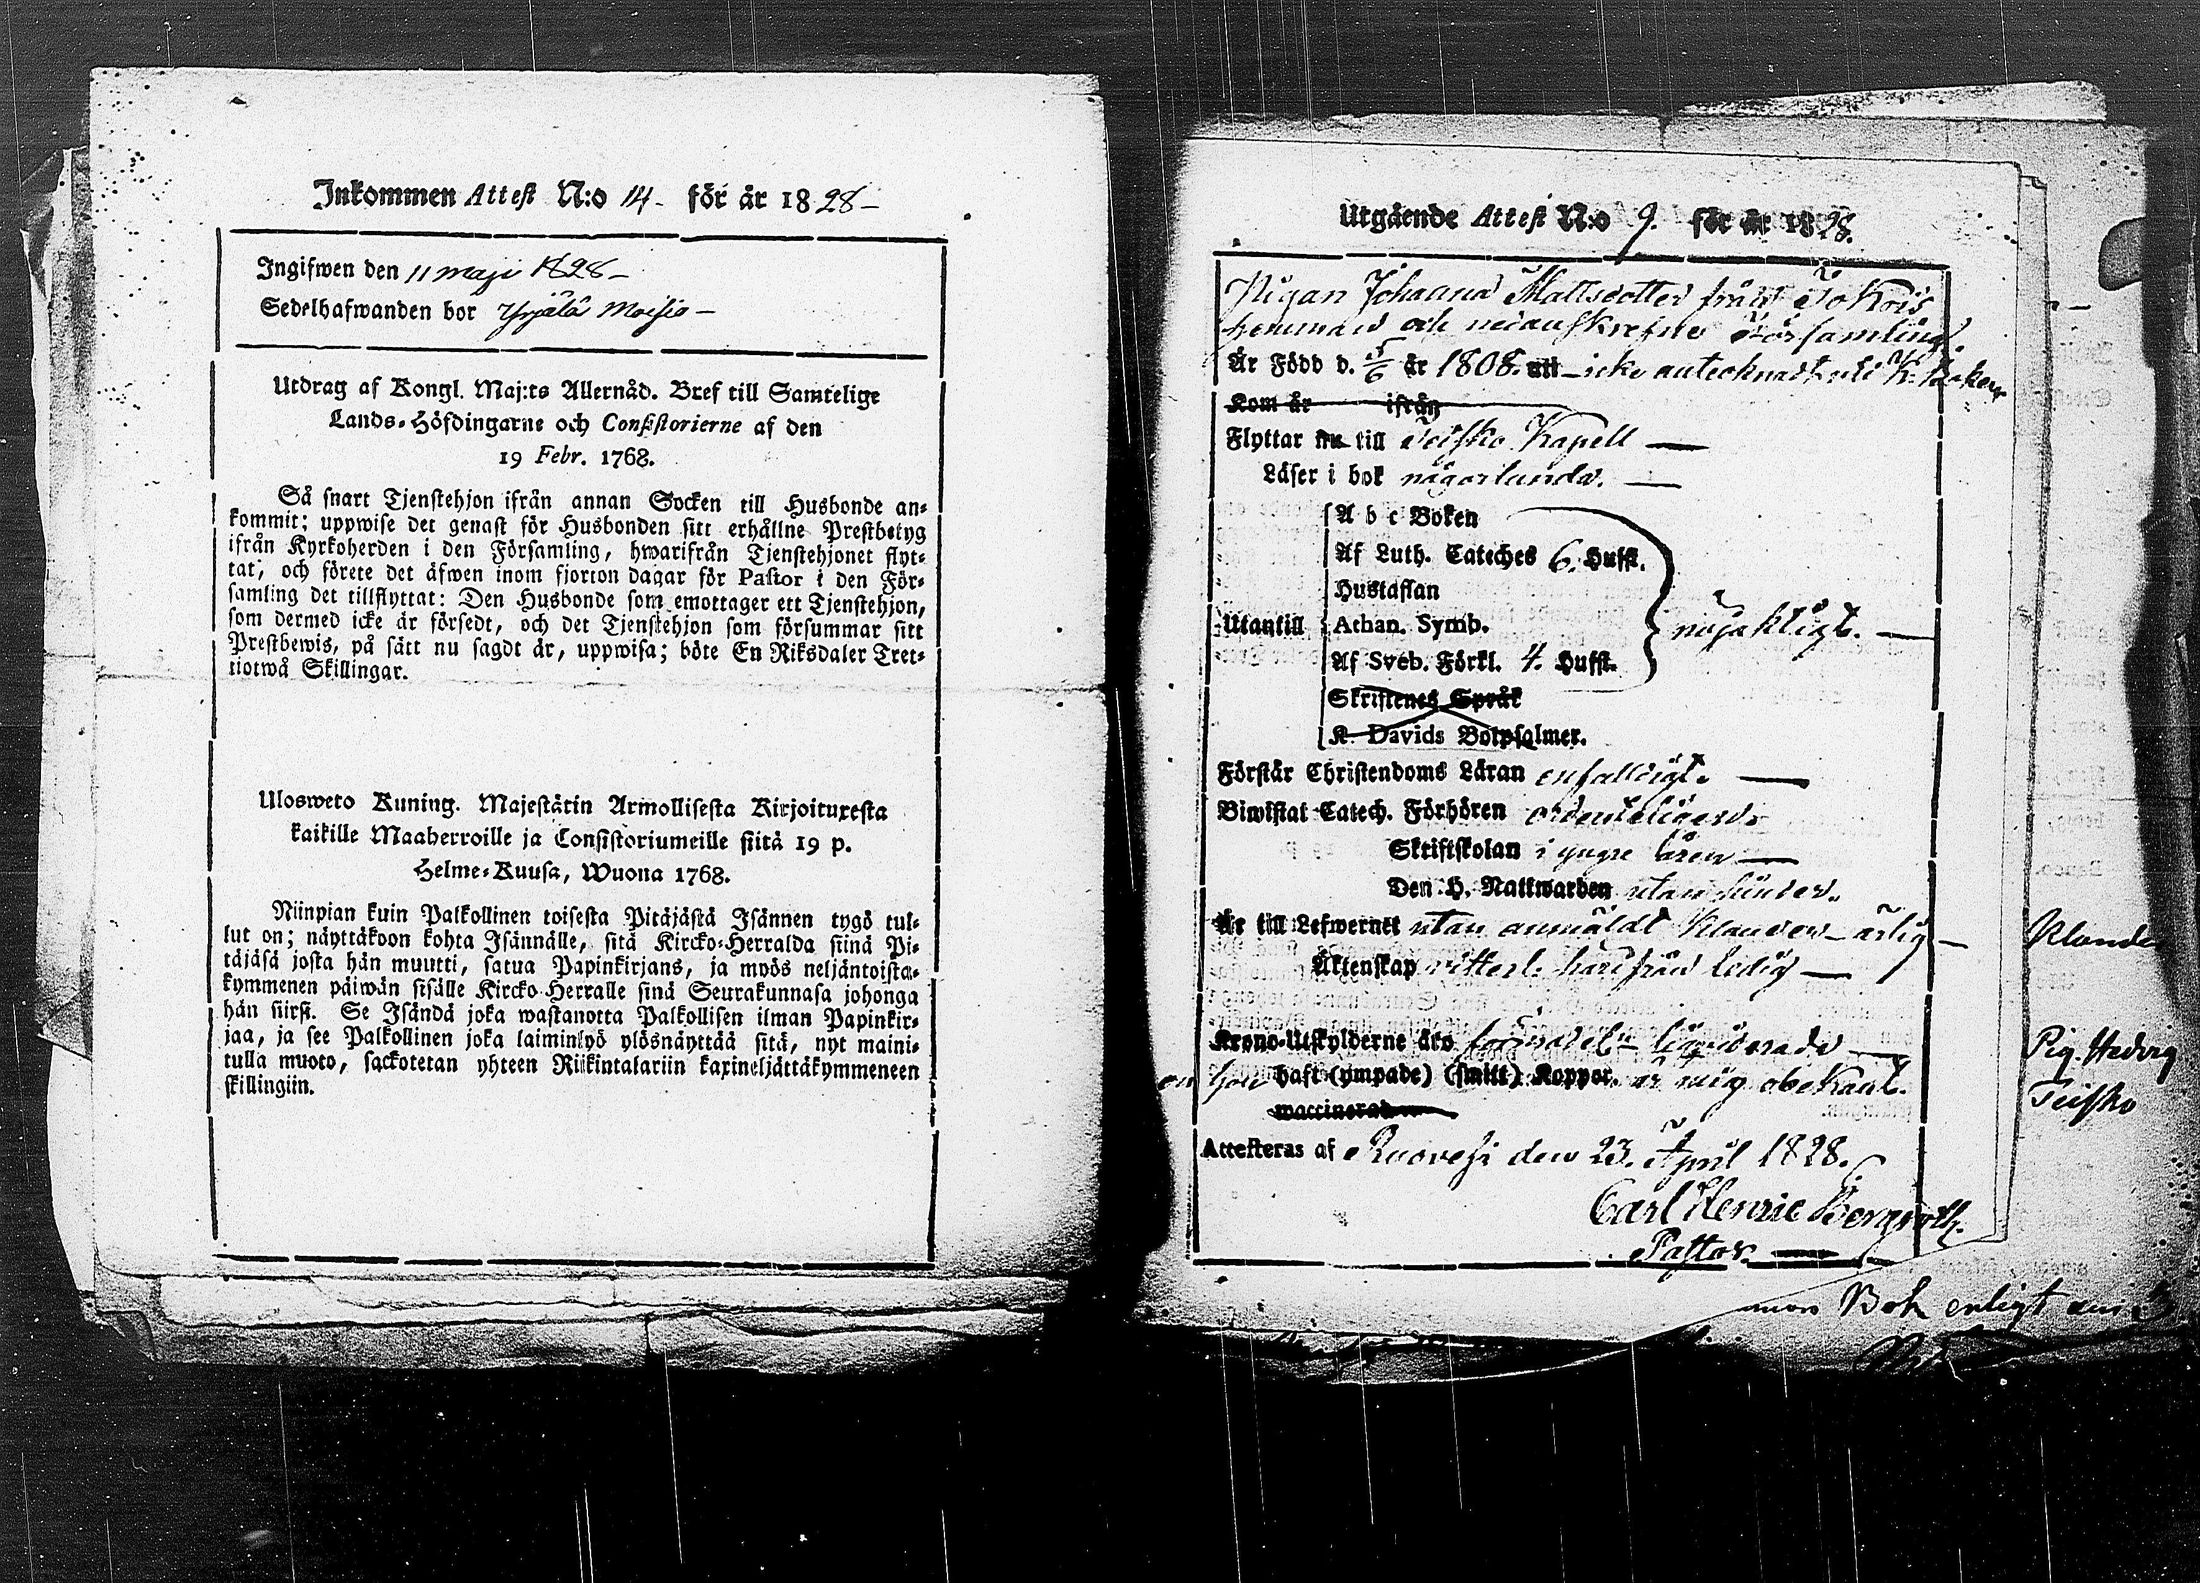 Inkommen Attest N:o 14 - för år 1828 -
Ingifwen den 11 maji 1828 -
Sedelhafwanden bor Yrjälä Moisio -
Utdrag af Kongl. Maj:ts Allernåd. Bref till Samtelige
Lands-Höfdingarne och Consistorierne af den
19 Febr. 1768.
Så snart Tjenstehjon ifrån annan Socken till Husbonde an-
kommit; uppwise det genast för Husbonden sitt erhållne Prestbetyg
ifrån Kyrkoherden i den Församling, hwarifrån Tjenstehjonet flyt-
tat, och förete det äfwen inom fjorton dagar för Pastor i den För-
samling det tillflyttat: Den Husbonde som emottager ett Tjenstehjon,
som dermed icke är försedt, och det Tjenstehjon som försummar sitt
Prestbewis, på sätt nu sagdt är, uppwisa; böte En Riksdaler Tret-
tiotwå Skillingar.
Ulosweto Kuning. Majestätin Armollisesta Kirjoituxesta
kaikille Maaherroille ja Consistoriumeille siitä 19 p.
Helme-Kuusa, Wuona 1768.
Niinpian kuin Palkollinen toisesta Pitäjästä Isännen tygö tul-
lut on; näyttäkoon kohta Isännälle, sitä Kircko-Herralda siinä Pi-
täjäsä josta hän muutti, satua Papinkirjans, ja myös neljäntoista-
kymmenen päiwän sisälle Kircko-Herralle sinä Seurakunnasa johonga
hän siirsi. Se Isändä joka wastanotta Palkollisen ilman Papinkir-
jaa, ja see Palkollinen joka laiminlyö ylösnäyttää sitä, nyt maini-
tulla muoto, sackotetan yhteen Riikintalariin kaxineljättäkymmeneen
skillingiin.
Utgående Attest N:o 9. för år 1828.
Pigan Johanna Mattsdotter från Jokois
hemman och nedanskrefne Församling.
Är Född d. 5/6 år 1808. uti - icke antecknadt uti K. Boken
Kom år ifrån
Flyttar nu till Teisko Kapell
Läser i bok någorlunda.
A b c Boken
Af Luth. Cateches 6. Hufst.
Hustaflan
Utantill Athan. Symb. nöjaktigt.
Af Sveb. Förkl. 4. Hufst.
Skriftenes Språk
K. Davids Botpsalmer.
Förstår Christendoms Läran enfaldigt.
Biwistat Catech. Förhören ordenteligen
Skriftskolan i yngre åren
Den H. Nattwarden utan hinder.
Är till Lefwernet utan anmäldt klander - ärlig -
Äktenskap witterl. härifrån ledig
Krono-Utskylderne äro liqviderade
om hon haft (ympade) (smitt) Koppor. är mig obekant.
waccinerad
Attesteras af Ruovesi den 23. April 1828.
Carl Henric Bergroth.
Pastor
Klander
Pig. Hedvig
Teisko
Bok enligt